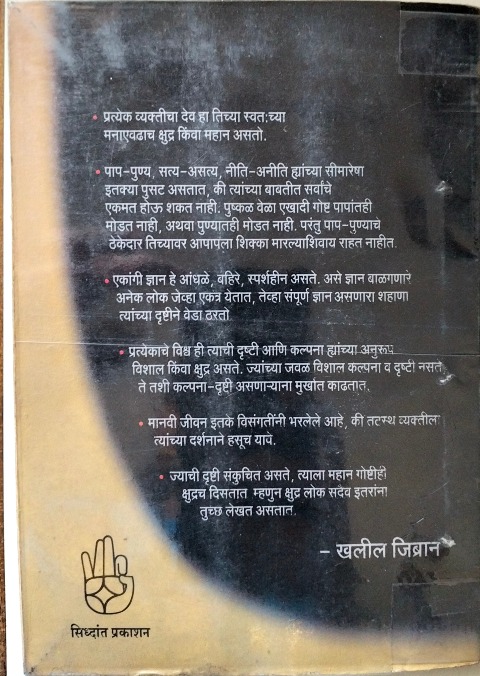 • प्रत्येक व्यक्तीचा देव हा तिच्या स्वतःच्या
मनाएवढाच क्षुद्र किंवा महान असतो.
• पाप-पुण्य, सत्य-असत्य, नीति-अनीति ह्यांच्या सीमारेषा
इतक्या पुसट असतात, की त्यांच्या बाबतीत सर्वांचे
एकमत होऊ शकत नाही. पुष्कळ वेळा एखादी गोष्ट पापांतही
मोडत नाही, अथवा पुण्यातही मोडत नाही. परंतु पाप-पुण्याचे
ठेकेदार तिच्यावर आपापला शिक्का मारल्याशिवाय राहत नाहीत.
• एकांगी ज्ञान हे आंधळे, बहिरे, स्पर्शहीन असते. असे ज्ञान बाळगणारे
अनेक लोक जेव्हा एकत्र येतात, तेव्हा संपूर्ण ज्ञान असणारा शहाणा
त्यांच्या दृष्टीने वेडा ठरतो.
• प्रत्येकाचे विश्व ही त्याची दृष्टी आणि कल्पना ह्यांच्या अनुरूप
विशाल किंवा क्षुद्र असते. ज्यांच्या जवळ विशाल कल्पना व दृष्टी नसते
ते तशी कल्पना-दृष्टी असणाऱ्याना मुर्खात काढतात.
• मानवी जीवन इतके विसंगतींनी भरलेले आहे, की तटस्थ व्यक्तीला
त्यांच्या दर्शनाने हसूच यावे.
• ज्याची दृष्टी संकुचित असते, त्याला महान गोष्टीही
क्षुद्रच दिसतात म्हणुन क्षुद्र लोक सदैव इतरांना
तुच्छ लेखत असतात.
– खलील जिब्रान
सिध्दांत प्रकाशन